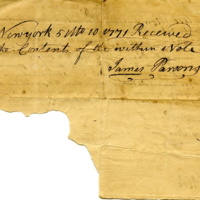 Newyork 5 Mo 10 1771 Received
the Contents of the within Note
James Parsons